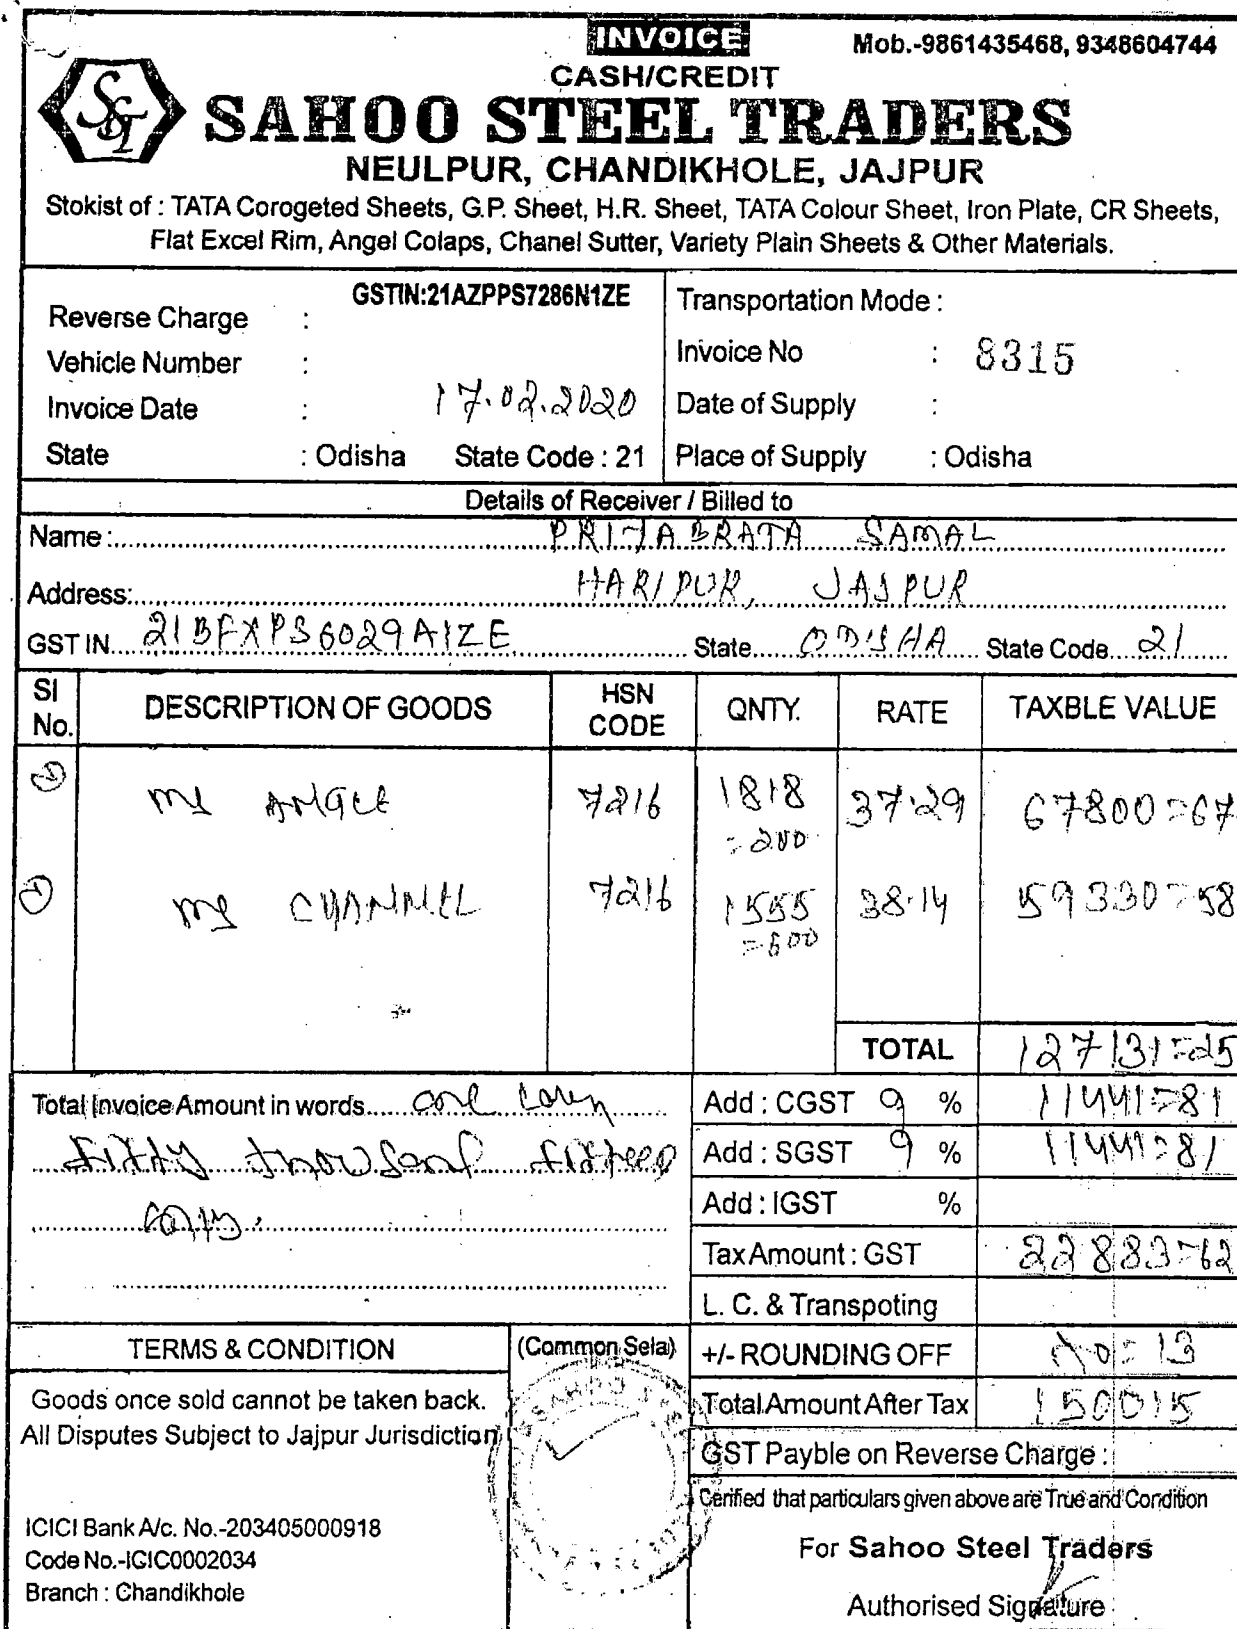 INVOICE
Mob.-9861435468, 9348604744
CASH/CREDIT
SST
SAHOO STEEL TRADERS
NEULPUR, CHANDIKHOLE, JAJPUR
Stokist of : TATA Corogeted Sheets, G.P. Sheet, H.R. Sheet, TATA Colour Sheet, Iron Plate, CR Sheets,
Flat Excel Rim, Angel Colaps, Chanel Sutter, Variety Plain Sheets & Other Materials.
GSTIN:21AZPPS7286N1ZE
Reverse Charge :
Vehicle Number :
Invoice Date : 17.02.2020
State : Odisha State Code : 21
Transportation Mode :
Invoice No : 8315
Date of Supply :
Place of Supply : Odisha
Details of Receiver / Billed to
Name: PRIYABRATA SAMAL
Address: HARIPUR, JAJPUR
GSTIN 21BFXPS6029A1ZE State ODISHA State Code 21
Sl No. DESCRIPTION OF GOODS HSN CODE QNTY. RATE TAXBLE VALUE
MS ANGLE 7216 1818=200 37.29 67800=67
MS CHANNEL 7216 1555=600 38.14 59330=58
TOTAL 127131=25
Total Invoice Amount in words
fifty thousand fifteen
only.
Add : CGST 9 % 11441=81
Add : SGST 9 % 11441=81
Add : IGST %
Tax Amount : GST 22883=62
L. C. & Transpoting
+/- ROUNDING OFF 00=13
Total Amount After Tax 150015
GST Payble on Reverse Charge :
TERMS & CONDITION
Goods once sold cannot be taken back.
All Disputes Subject to Jajpur Jurisdiction
ICICI Bank A/c. No.-203405000918
Code No.-ICIC0002034
Branch : Chandikhole
(Common Sela)
Cerified that particulars given above are True and Condition
For Sahoo Steel Traders
Authorised Signature